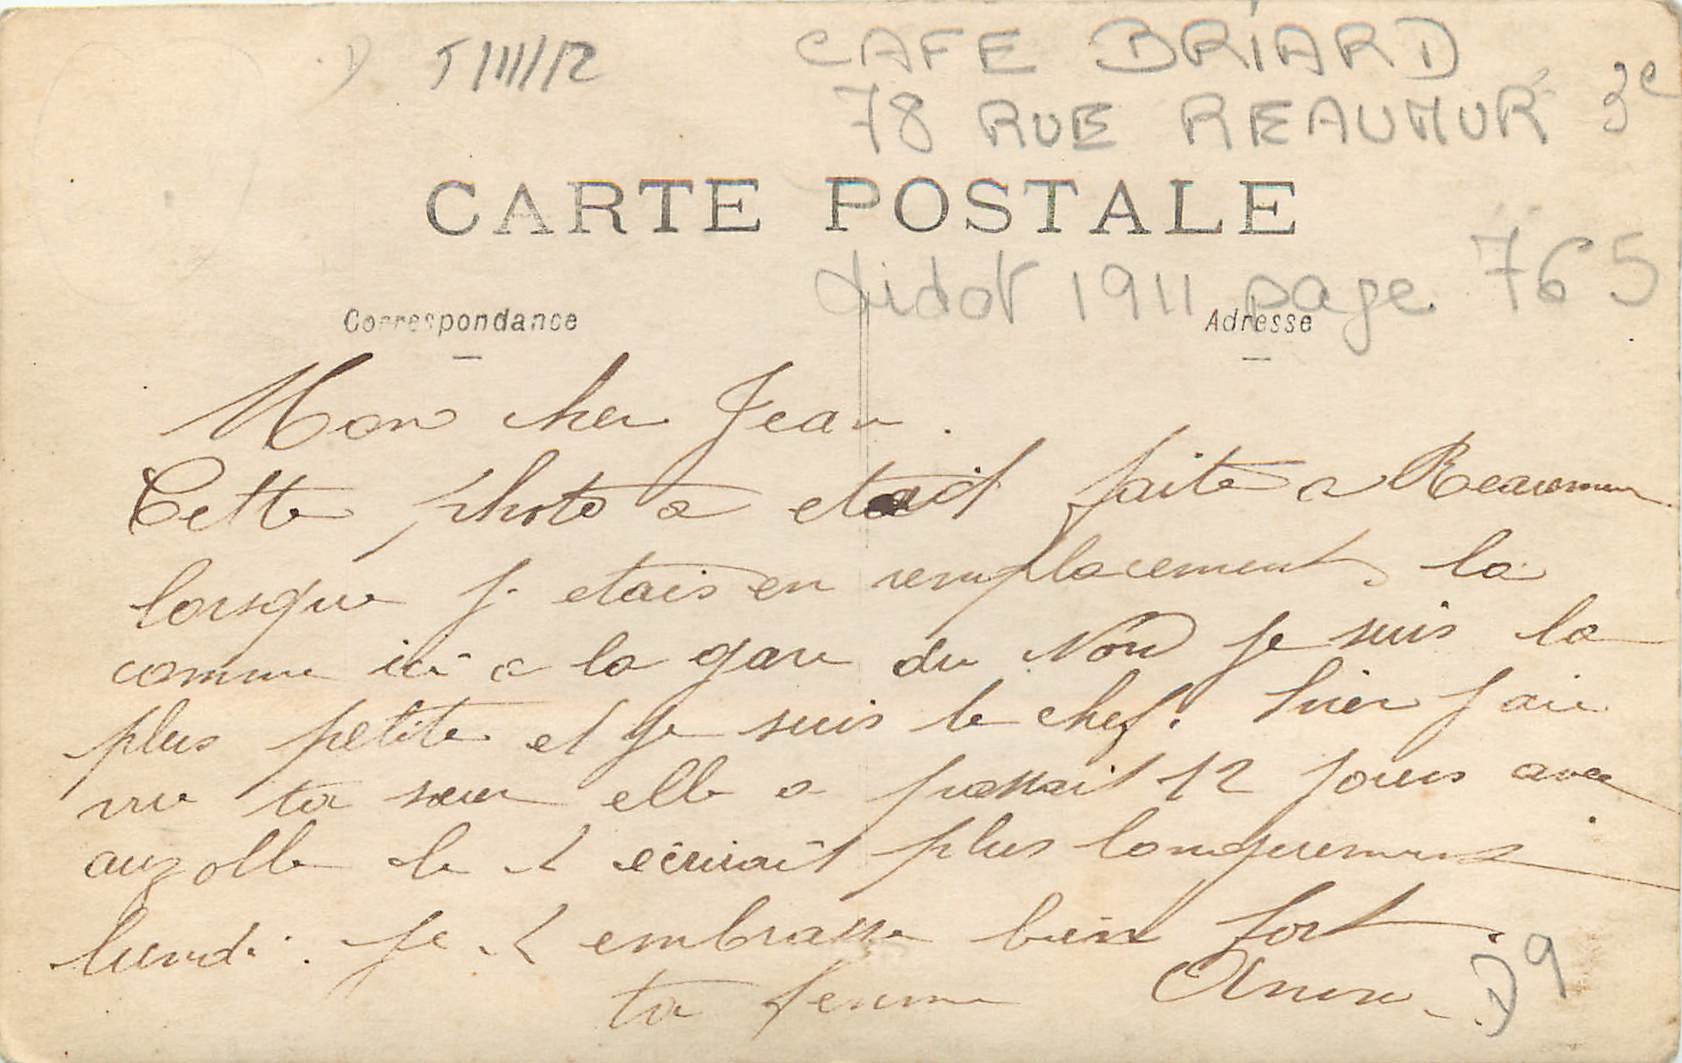 5/III/12
CAFE BRIARD
78 RUE REAUMUR 3e
CARTE POSTALE
didot 1911 page 765
Correspondance
Adresse
Mon cher Jean.
Cette photo a etait faite a Reaumur
lorsque j. etais en remplacement la
comme ici a la gare du Nord je suis la
plus petite et je suis le chef. hier j ai
vu ta sœur elle a passait 12 jours avec
elle je t ecrirait plus longuement
lundi. Je t embrasse bien fort.
ta femme
D9